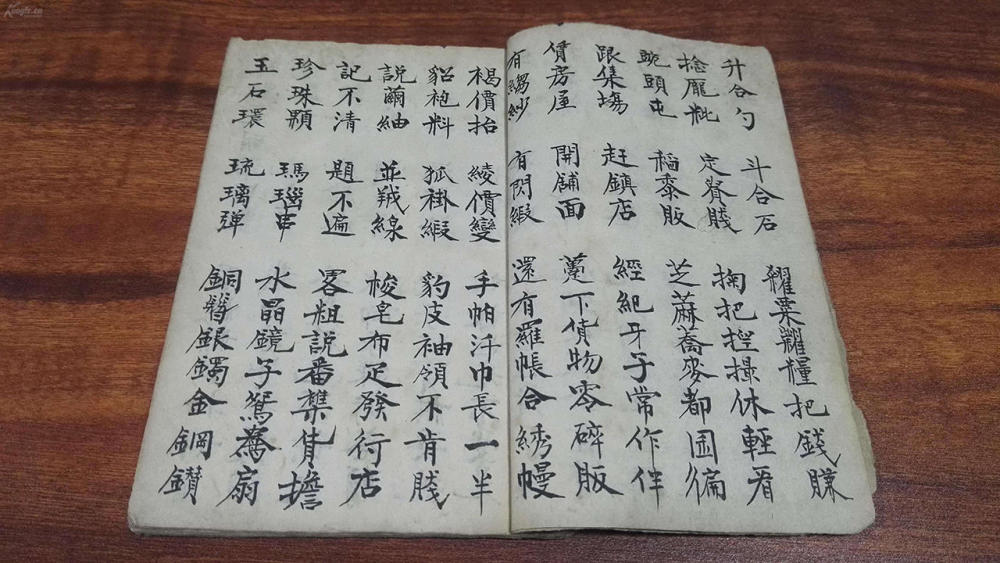 Kongfz.cn
升合勺 斗合石 糴粟糶糧把錢賺
捻壟粃 定賤 掏把揑撮休輕看
豌頭屯 稻黍販 芝蔴蕎麥都囤徧
跟集場 赶鎮店 經紀牙子常作伴
賃房屋 開舖面 躉下貨物零碎販
有縐紗 有閃緞 還有羅帳合綉幔
褐價抬 綾價變 手帕汗巾長一半
貂袍料 狐褂緞 豹皮袖領不肯賤
説繭紬 並羢線 梭皂布疋發行店
記不清 題不遍 畧粗説番擔
珍珠顆 瑪瑙串 水晶鏡子鴛鴦扇
玉石環 琉璃 銅簪銀鐲金鋼鑽